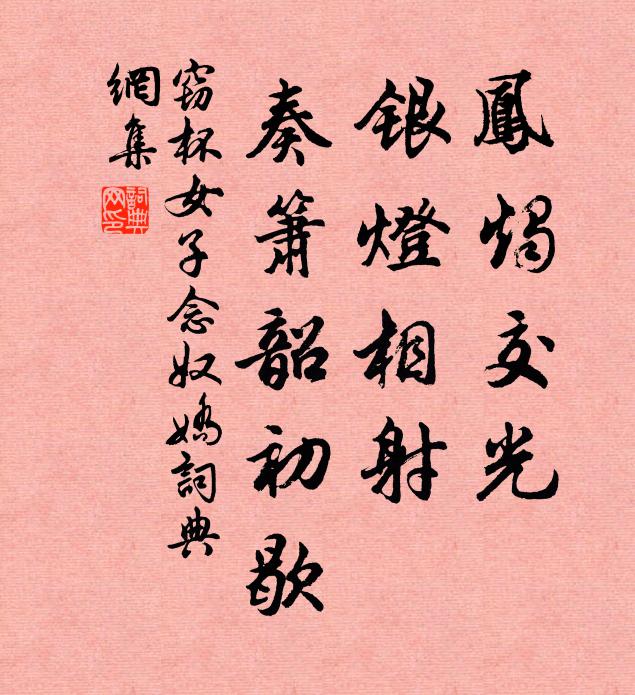 鳳燭交光
銀燈相射
奏簫韶初歇
窃杯女子念奴嬌詞典
網集
詞典
网印